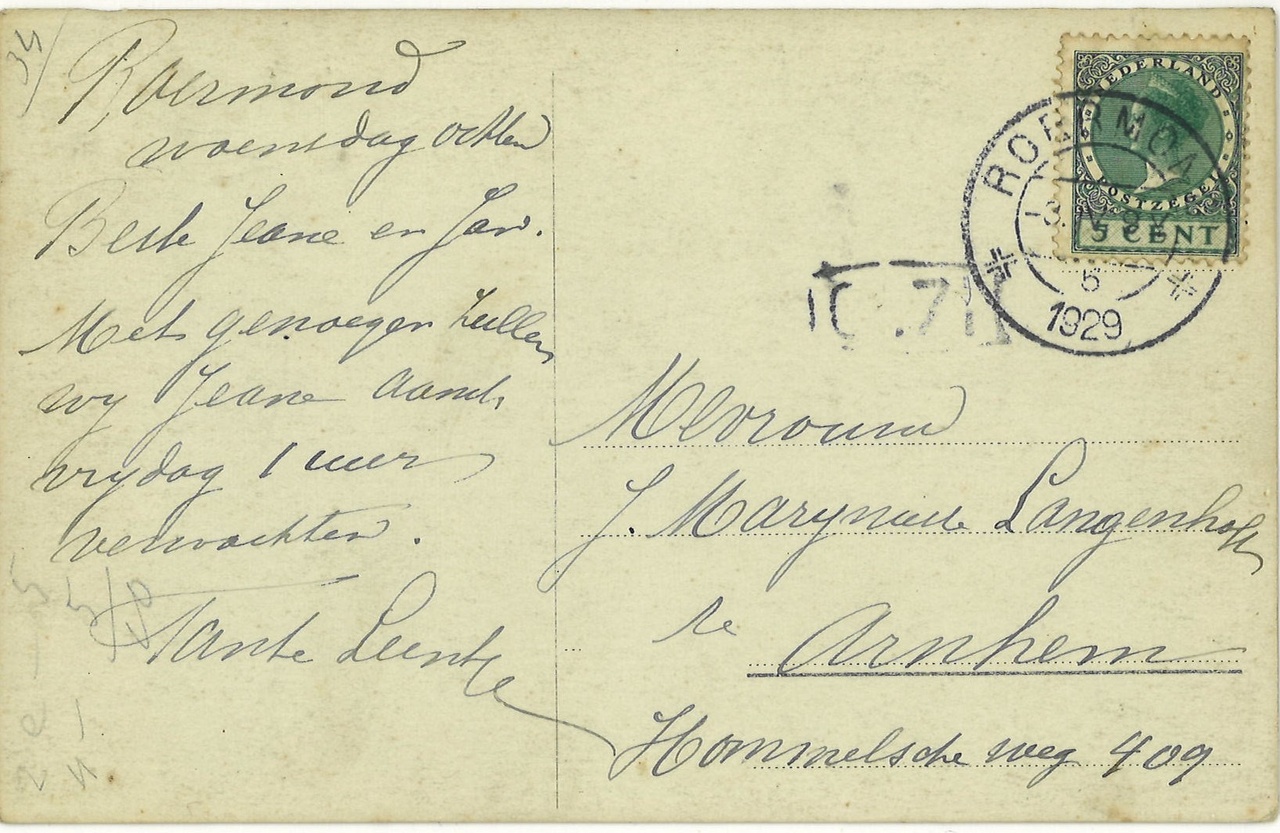 34/
Roermond
woensdag
Beste Jeane en Jan.
Met genoegen zullen
wy Jeane aand,
vrydag 1 uur
verwachten.
Tante Leente
NEDERLAND
POSTZEGEL
5 CENT
ROERMOND
5
1929
Mevrouw
J. Marynasse Langenhoff
te Arnhem
Hommelsche weg 409